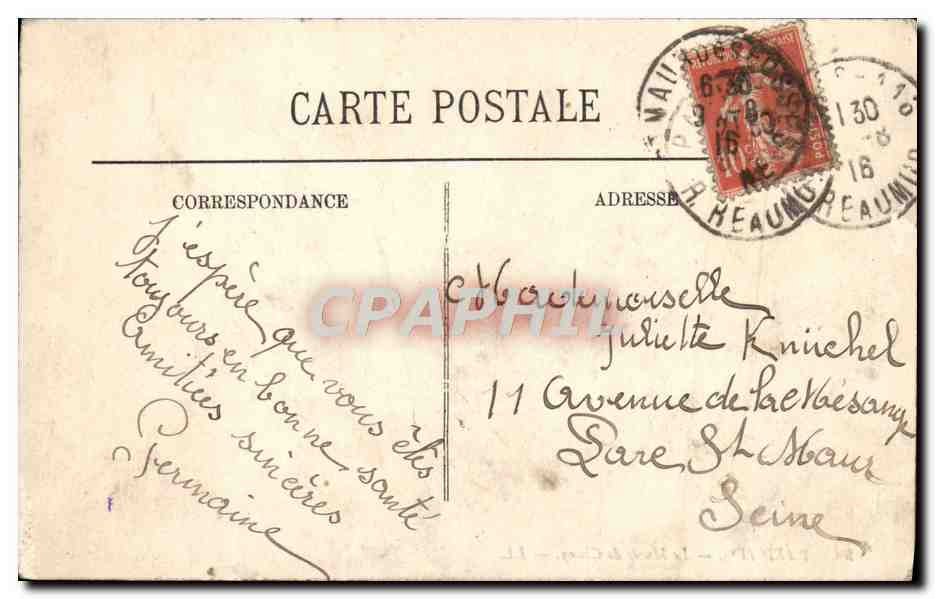 CARTE POSTALE
CORRESPONDANCE
ADRESSE
J'espère que vous êtes
toujours en bonne santé
Amitiées sincères
Germaine
Mademoiselle
Juliette Knuchel
11 Avenue de la Mésange
Parc St Maur
Seine
CPAPHIL
6 30
16
R. REAUMUR
1 30
16
REAUMUR
10
POSTES